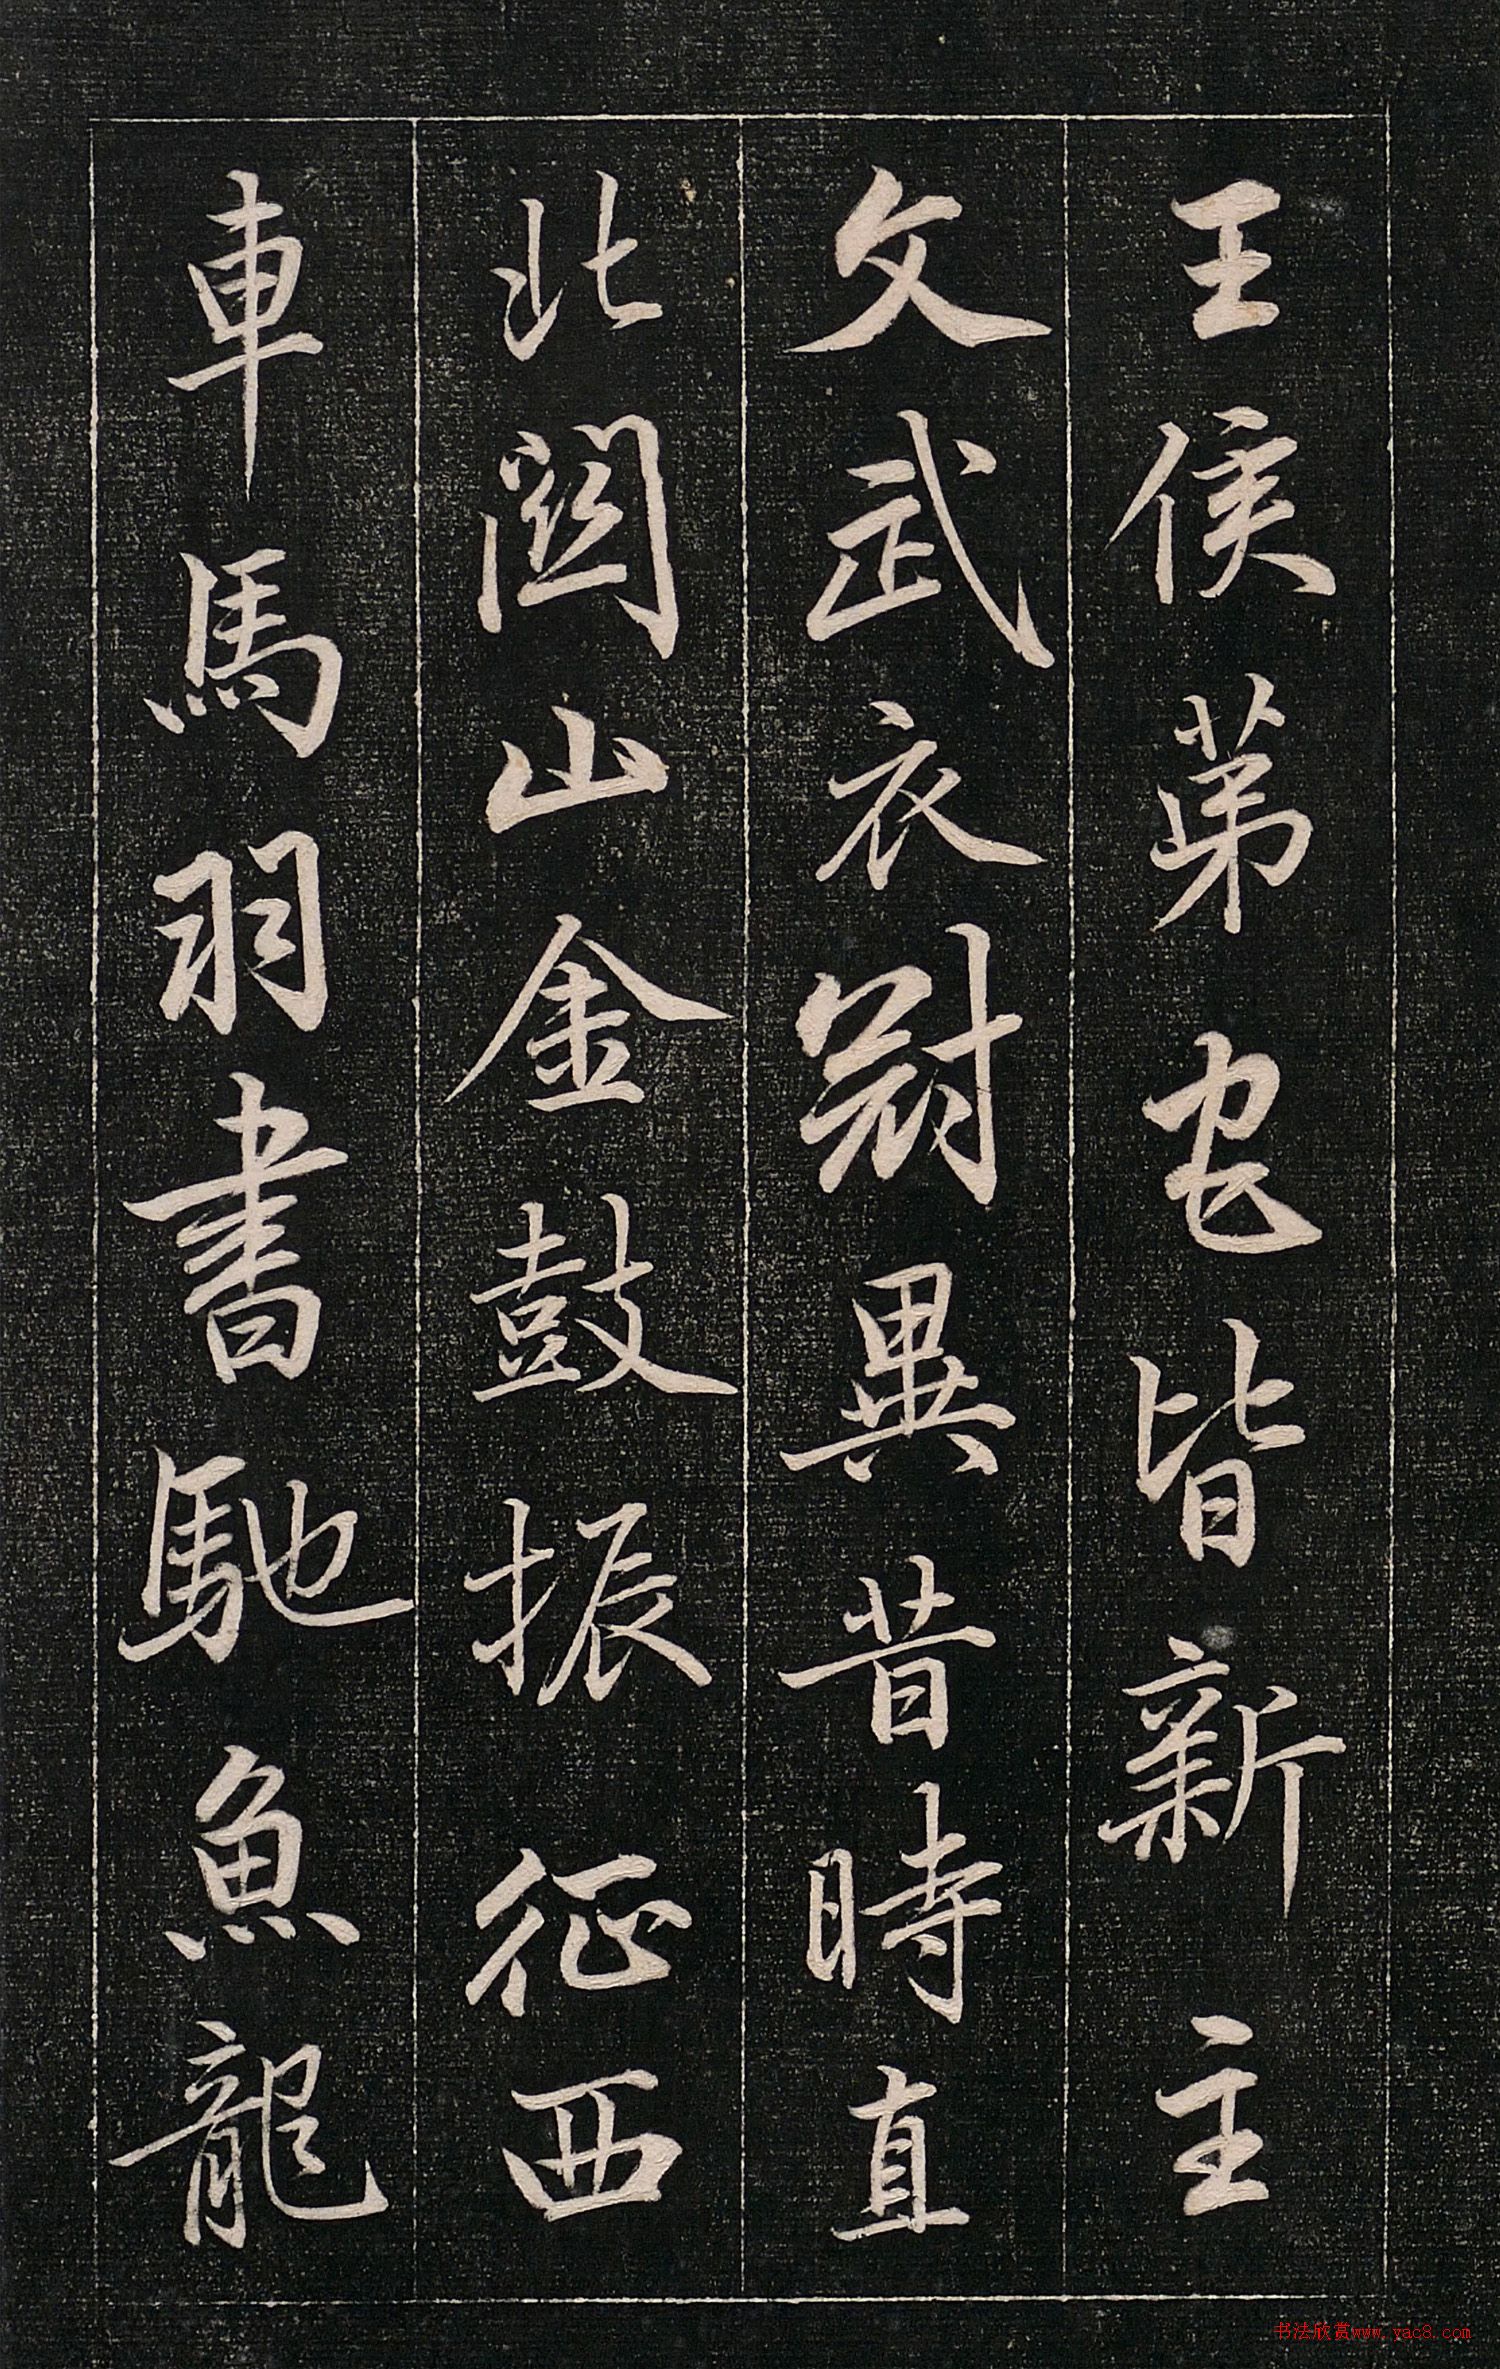 王侯苐宅皆新主
文武衣冠異昔時直
北關山金鼓振征西
車馬羽書馳魚龍
书法欣赏www.yac8.com